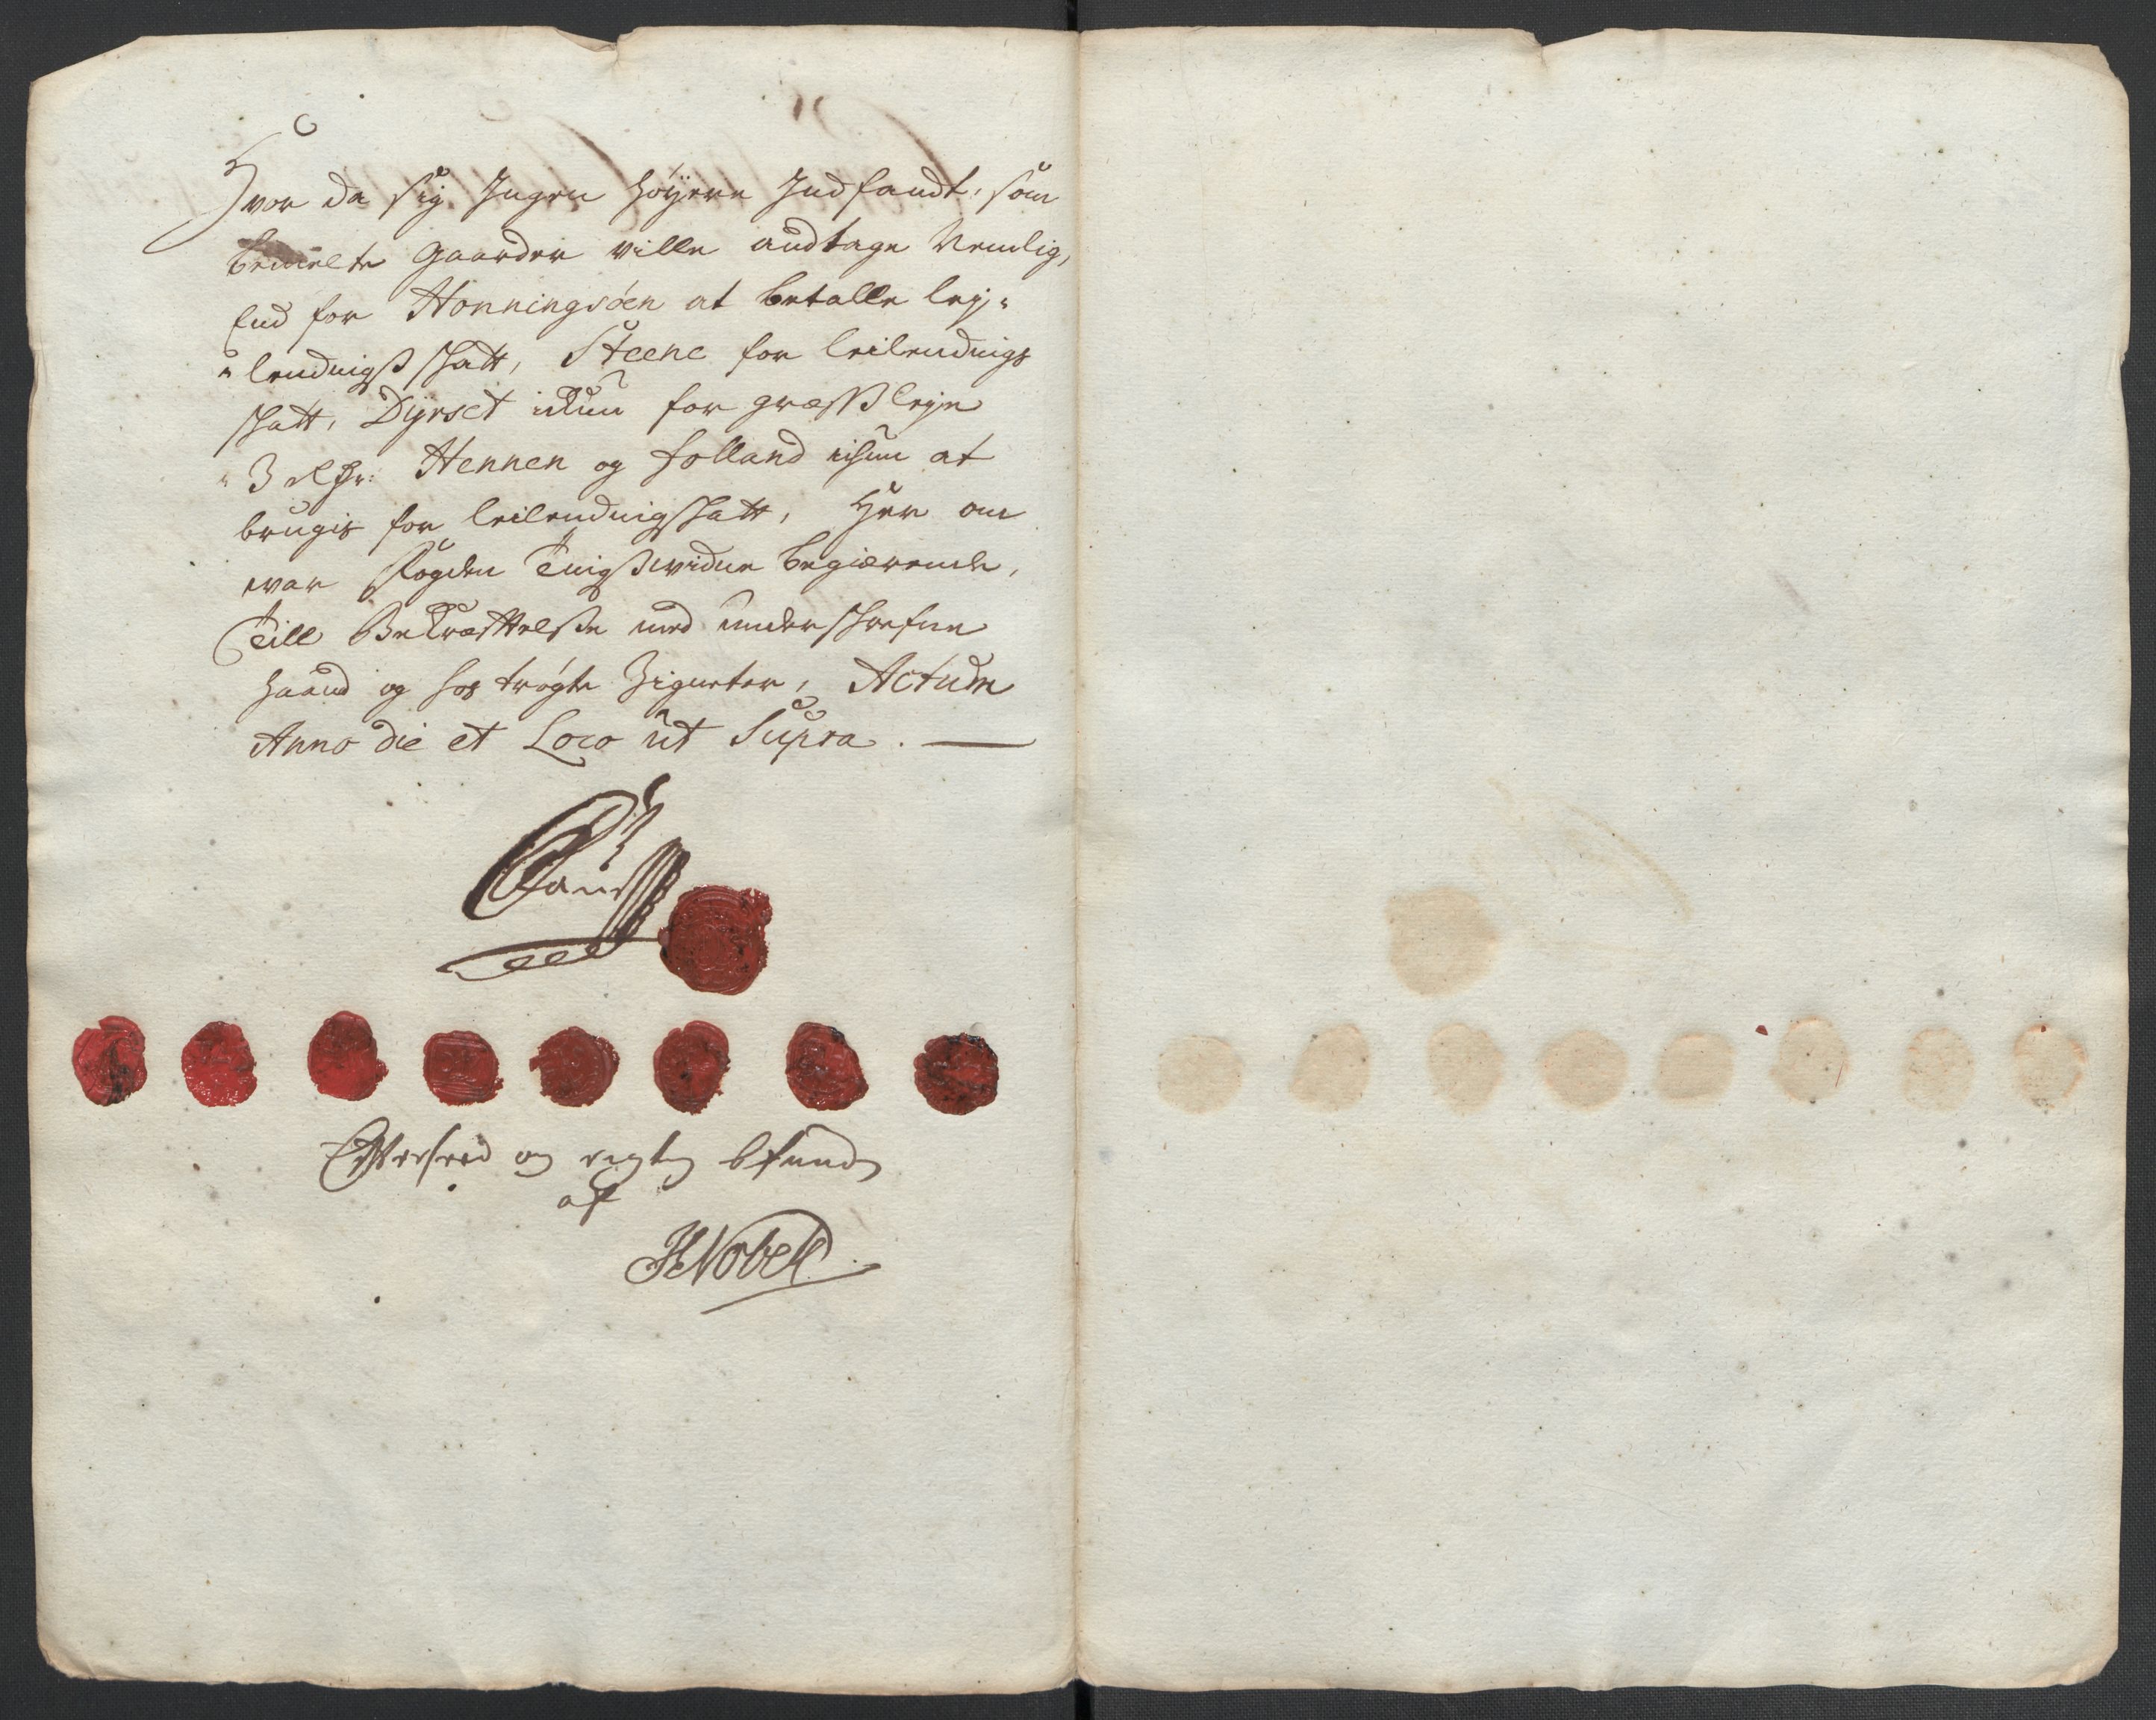 Hvor da sig Ingen høyere Indfandt, som
bemelte Gaarder ville andtage Nemlig,
End for Honningsøen at betalle ley-
lendnigß skatt, Steene for leilendnigs
skatt, Dyrset ickun for græßleye
3 rdr: Hennen og Folland ickun at
brugis for leilendnigskatt, Her om
war Fogden Tingßwidne begiærende,
Till Bekræfttelße med underskrefne
haand og hos trøgte Zigneter, Actum
Anno die et Loco ut Supra.
Efterseed og rigtig befunden
af
HNobell